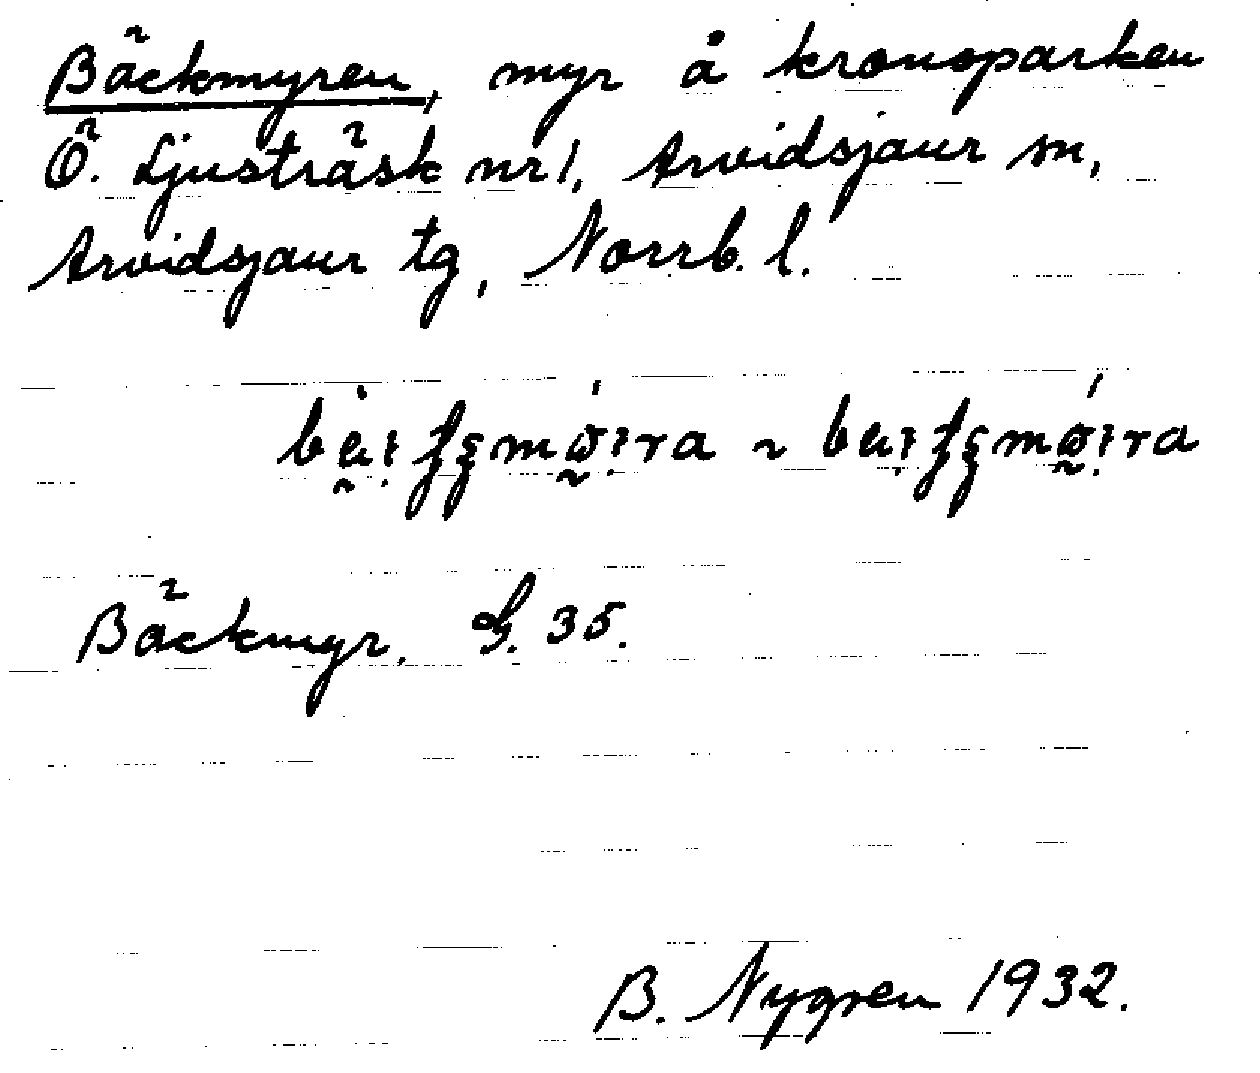 Bäckmyren, myr å kronoparken
Ö. Ljusträsk nr 1, Arvidsjaur sn,
Arvidsjaur tg, Norrb. l.
Bäckmyr. G. 35.
B. Nygren 1932.